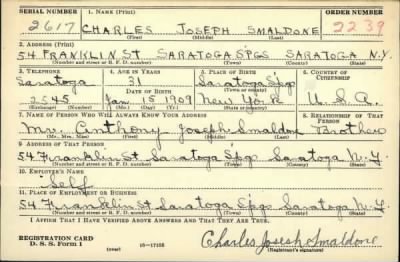 SERIAL NUMBER 1. NAME (Print) ORDER NUMBER
2617 CHARLES JOSEPH SMALDONE 2239
(First) (Middle) (Last)
2. ADDRESS (Print)
54 FRANKLIN St SARATOGA SPGS SARATOGA N.Y.
(Number and street or R. F. D. number) (Town) (County) (State)
3. TELEPHONE 4. AGE IN YEARS 5. PLACE OF BIRTH 6. COUNTRY OF CITIZENSHIP
Saratoga 31 Saratoga Spgs
DATE OF BIRTH (Town or county)
2545 Jan 15 1909 New York U.S.A.
(Exchange) (Number) (Mo.) (Day) (Yr.) (State or country)
7. NAME OF PERSON WHO WILL ALWAYS KNOW YOUR ADDRESS 8. RELATIONSHIP OF THAT PERSON
Mr. Anthony Joseph Smaldone Brother
(Mr., Mrs., Miss) (First) (Middle) (Last)
9. ADDRESS OF THAT PERSON
54 Franklin St Saratoga Spgs Saratoga N.Y.
(Number and street or R. F. D. number) (Town) (County) (State)
10. EMPLOYER'S NAME
Self
11. PLACE OF EMPLOYMENT OR BUSINESS
54 Franklin St Saratoga Spgs Saratoga N.Y.
(Number and street or R. F. D. number) (Town) (County) (State)
I AFFIRM THAT I HAVE VERIFIED ABOVE ANSWERS AND THAT THEY ARE TRUE.
REGISTRATION CARD
D. S. S. Form 1 (over) 16—17105 Charles Joseph Smaldone
(Registrant's signature)